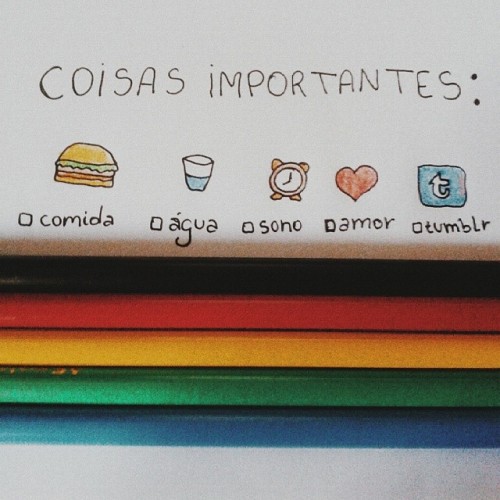 COISAS IMPORTANTES:
t
comida água sono amor tumblr